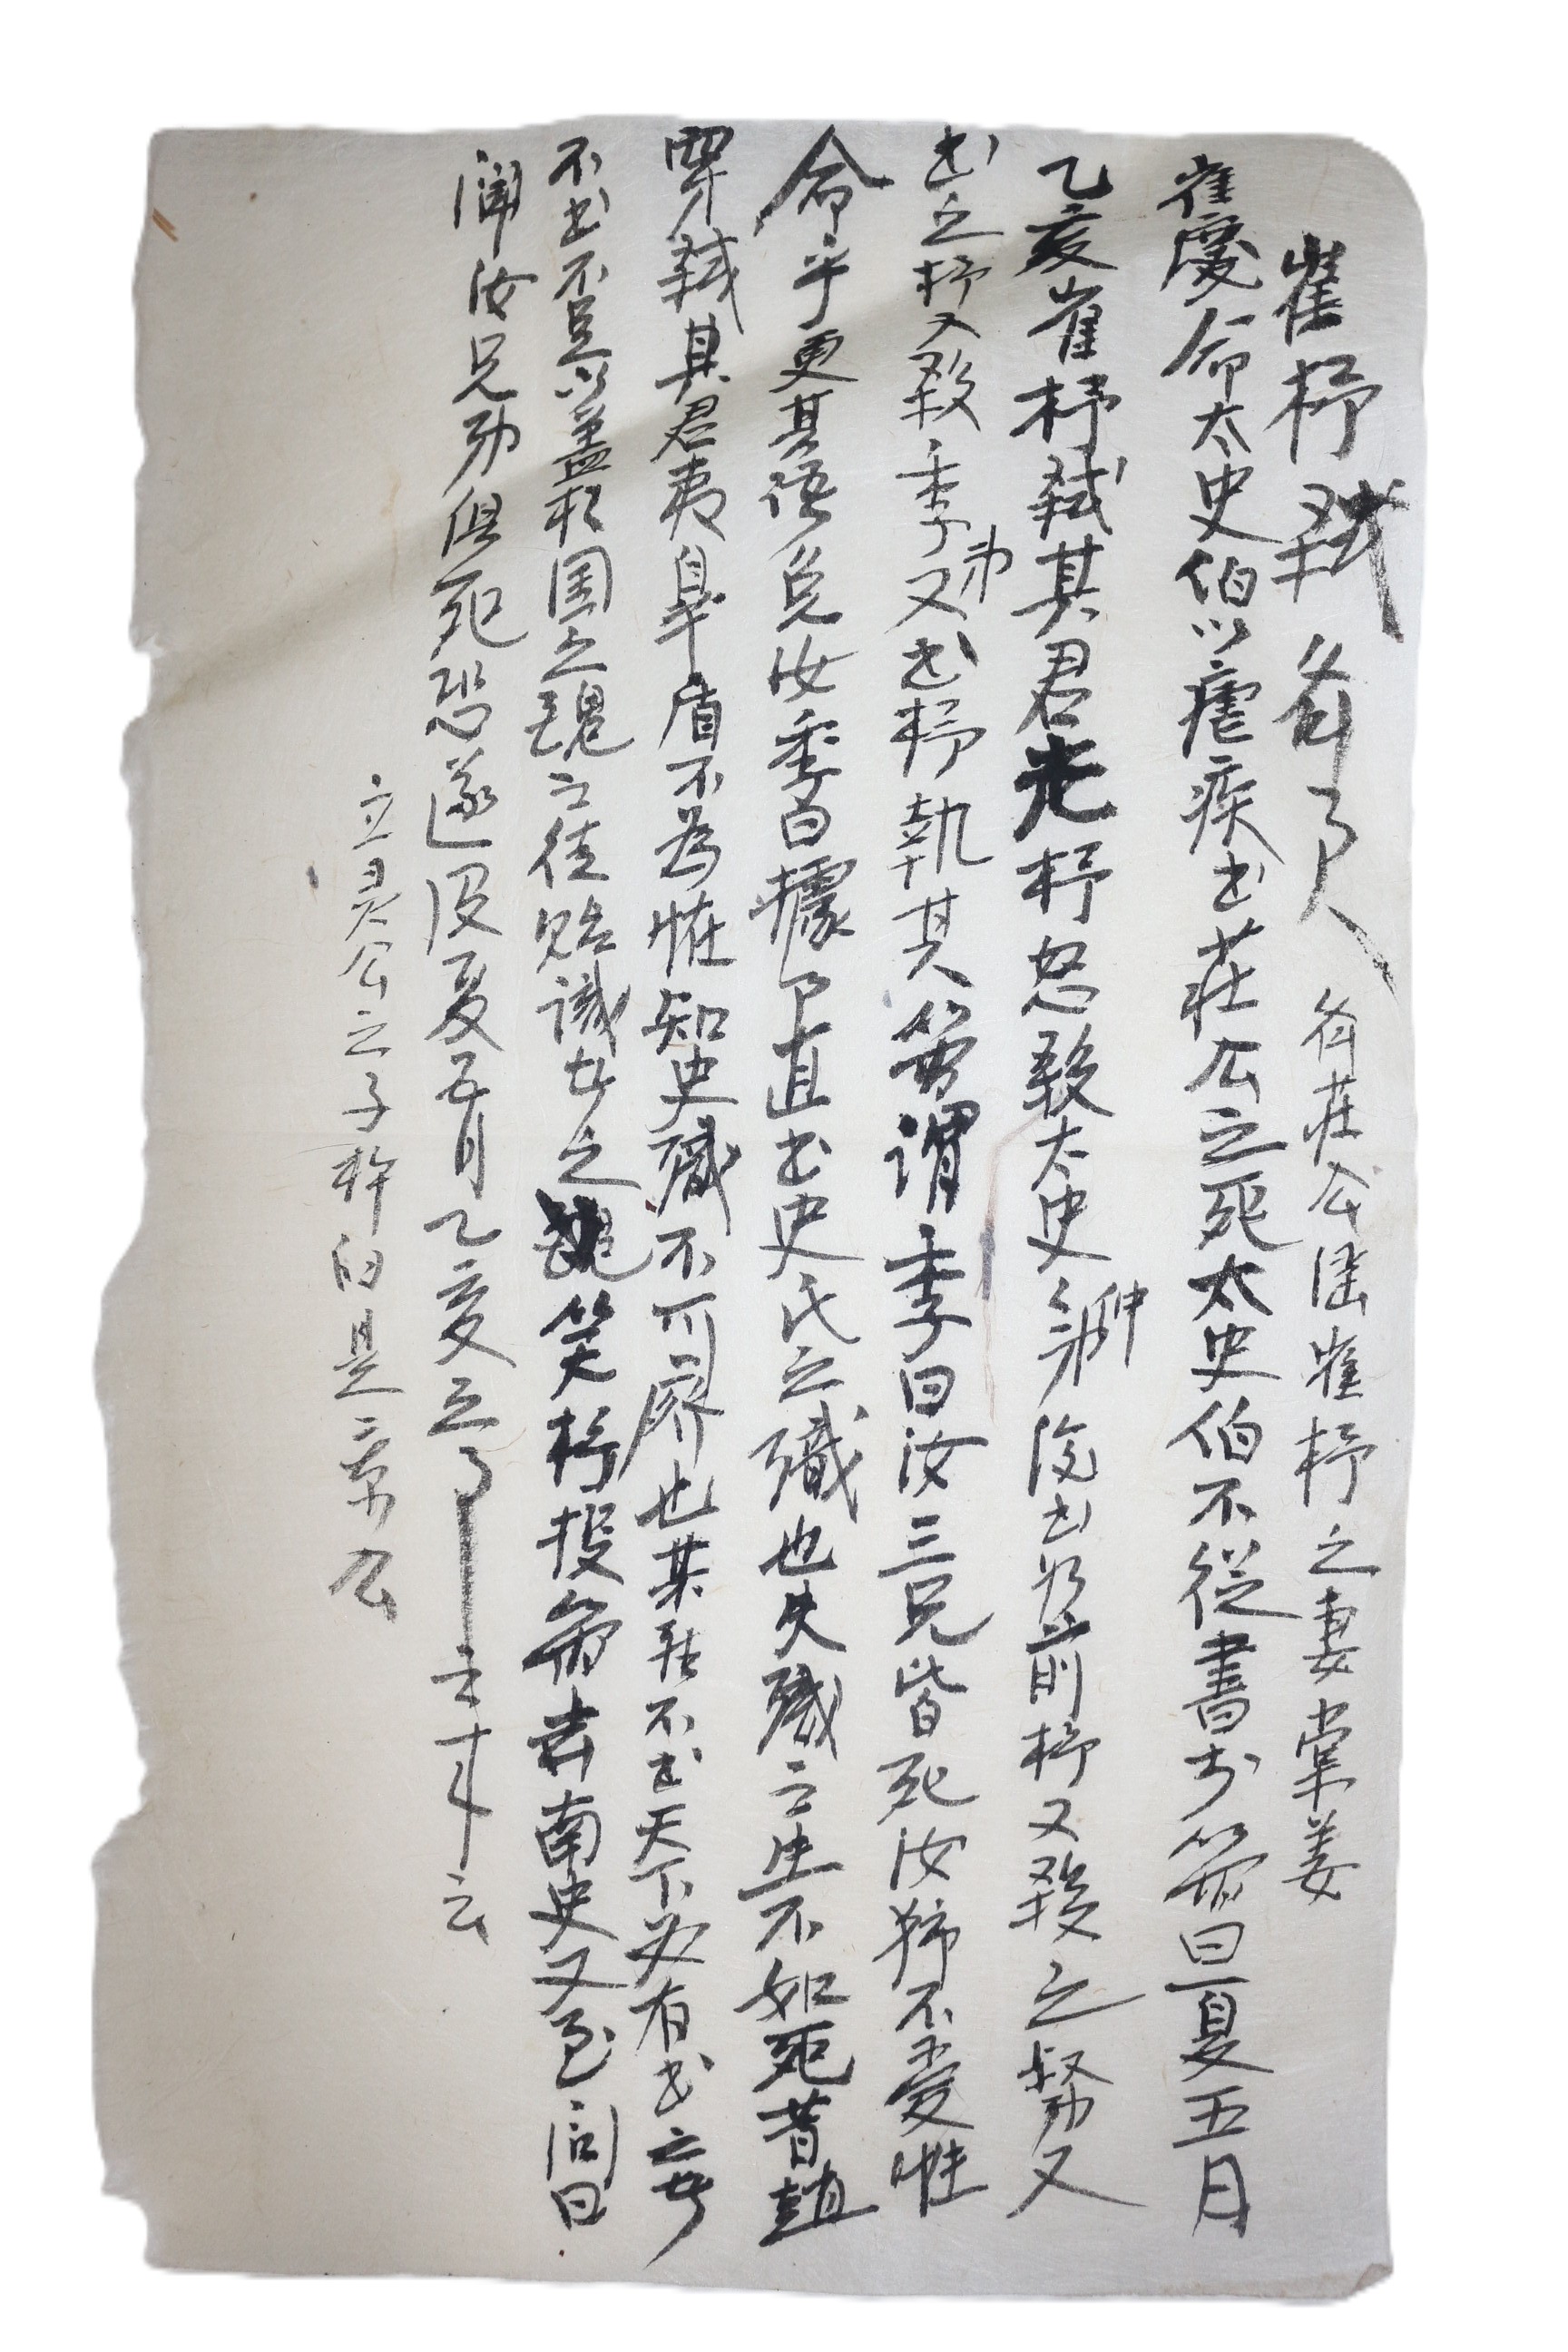 崔杼弑齐君 齐莊公淫崔杼之妻棠姜
崔慶命太史伯以瘧疾书莊公之死太史伯不從書于简曰夏五月
乙亥崔杼弑其君光杼怒殺太史 仲 復书如前杼又殺之叔又
书之杼又殺季弟又书杼執其简謂季曰汝三兄皆死汝獨不爱性
命乎更其语免汝季曰據事直书史氏之職也失職之生不如死昔趙
穿弑其君夷皐盾不為怪知史職不可廢也某即不书天下必有书之者
不书不足以盖相国之醜之徒贻識者之醜笑杼投简去南史又至问曰
闻汝兄弟俱死恐遂没夏五月乙亥之事
立灵公之子杵臼是云景公